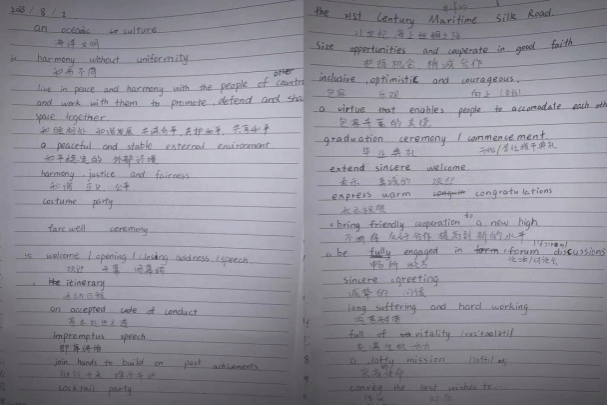 an oceanic culture
海洋文明
harmony without uniformity
和而不同
live in peace and harmony with the people of other
and work with them to promote, defend and
together
a peaceful and stable external environment
和平稳定的 外部环境
harmony, justice and fairness
和谐 正义 公平
costume party
farewell ceremony
welcome / opening / closing address / speech
欢迎 开幕 闭幕词
itinerary
an accepted code of conduct
impromptus speech
即席讲话
join hands to build on past achievements
cocktail party
the 21st Century Maritime Silk Road.
21世纪 海上丝绸之路
Size opportunities and cooperate in good faith
把握机会 精诚合作
inclusive, optimistic and courageous.
包容 乐观 向上
a virtue that enables people to accomodate each
graduation ceremony / commencement
毕业典礼
extend sincere welcome
表示 真诚的 欢迎
express warm congratulations
bring friendly cooperation to a new high
不断将 友好合作 提高到 新的水平
be fully engaged in forum discussions
畅所欲言
sincere greeting
诚挚的 问候
long suffering and hard working
吃苦耐劳
full of vitality
a lofty mission
convey the best wishes to